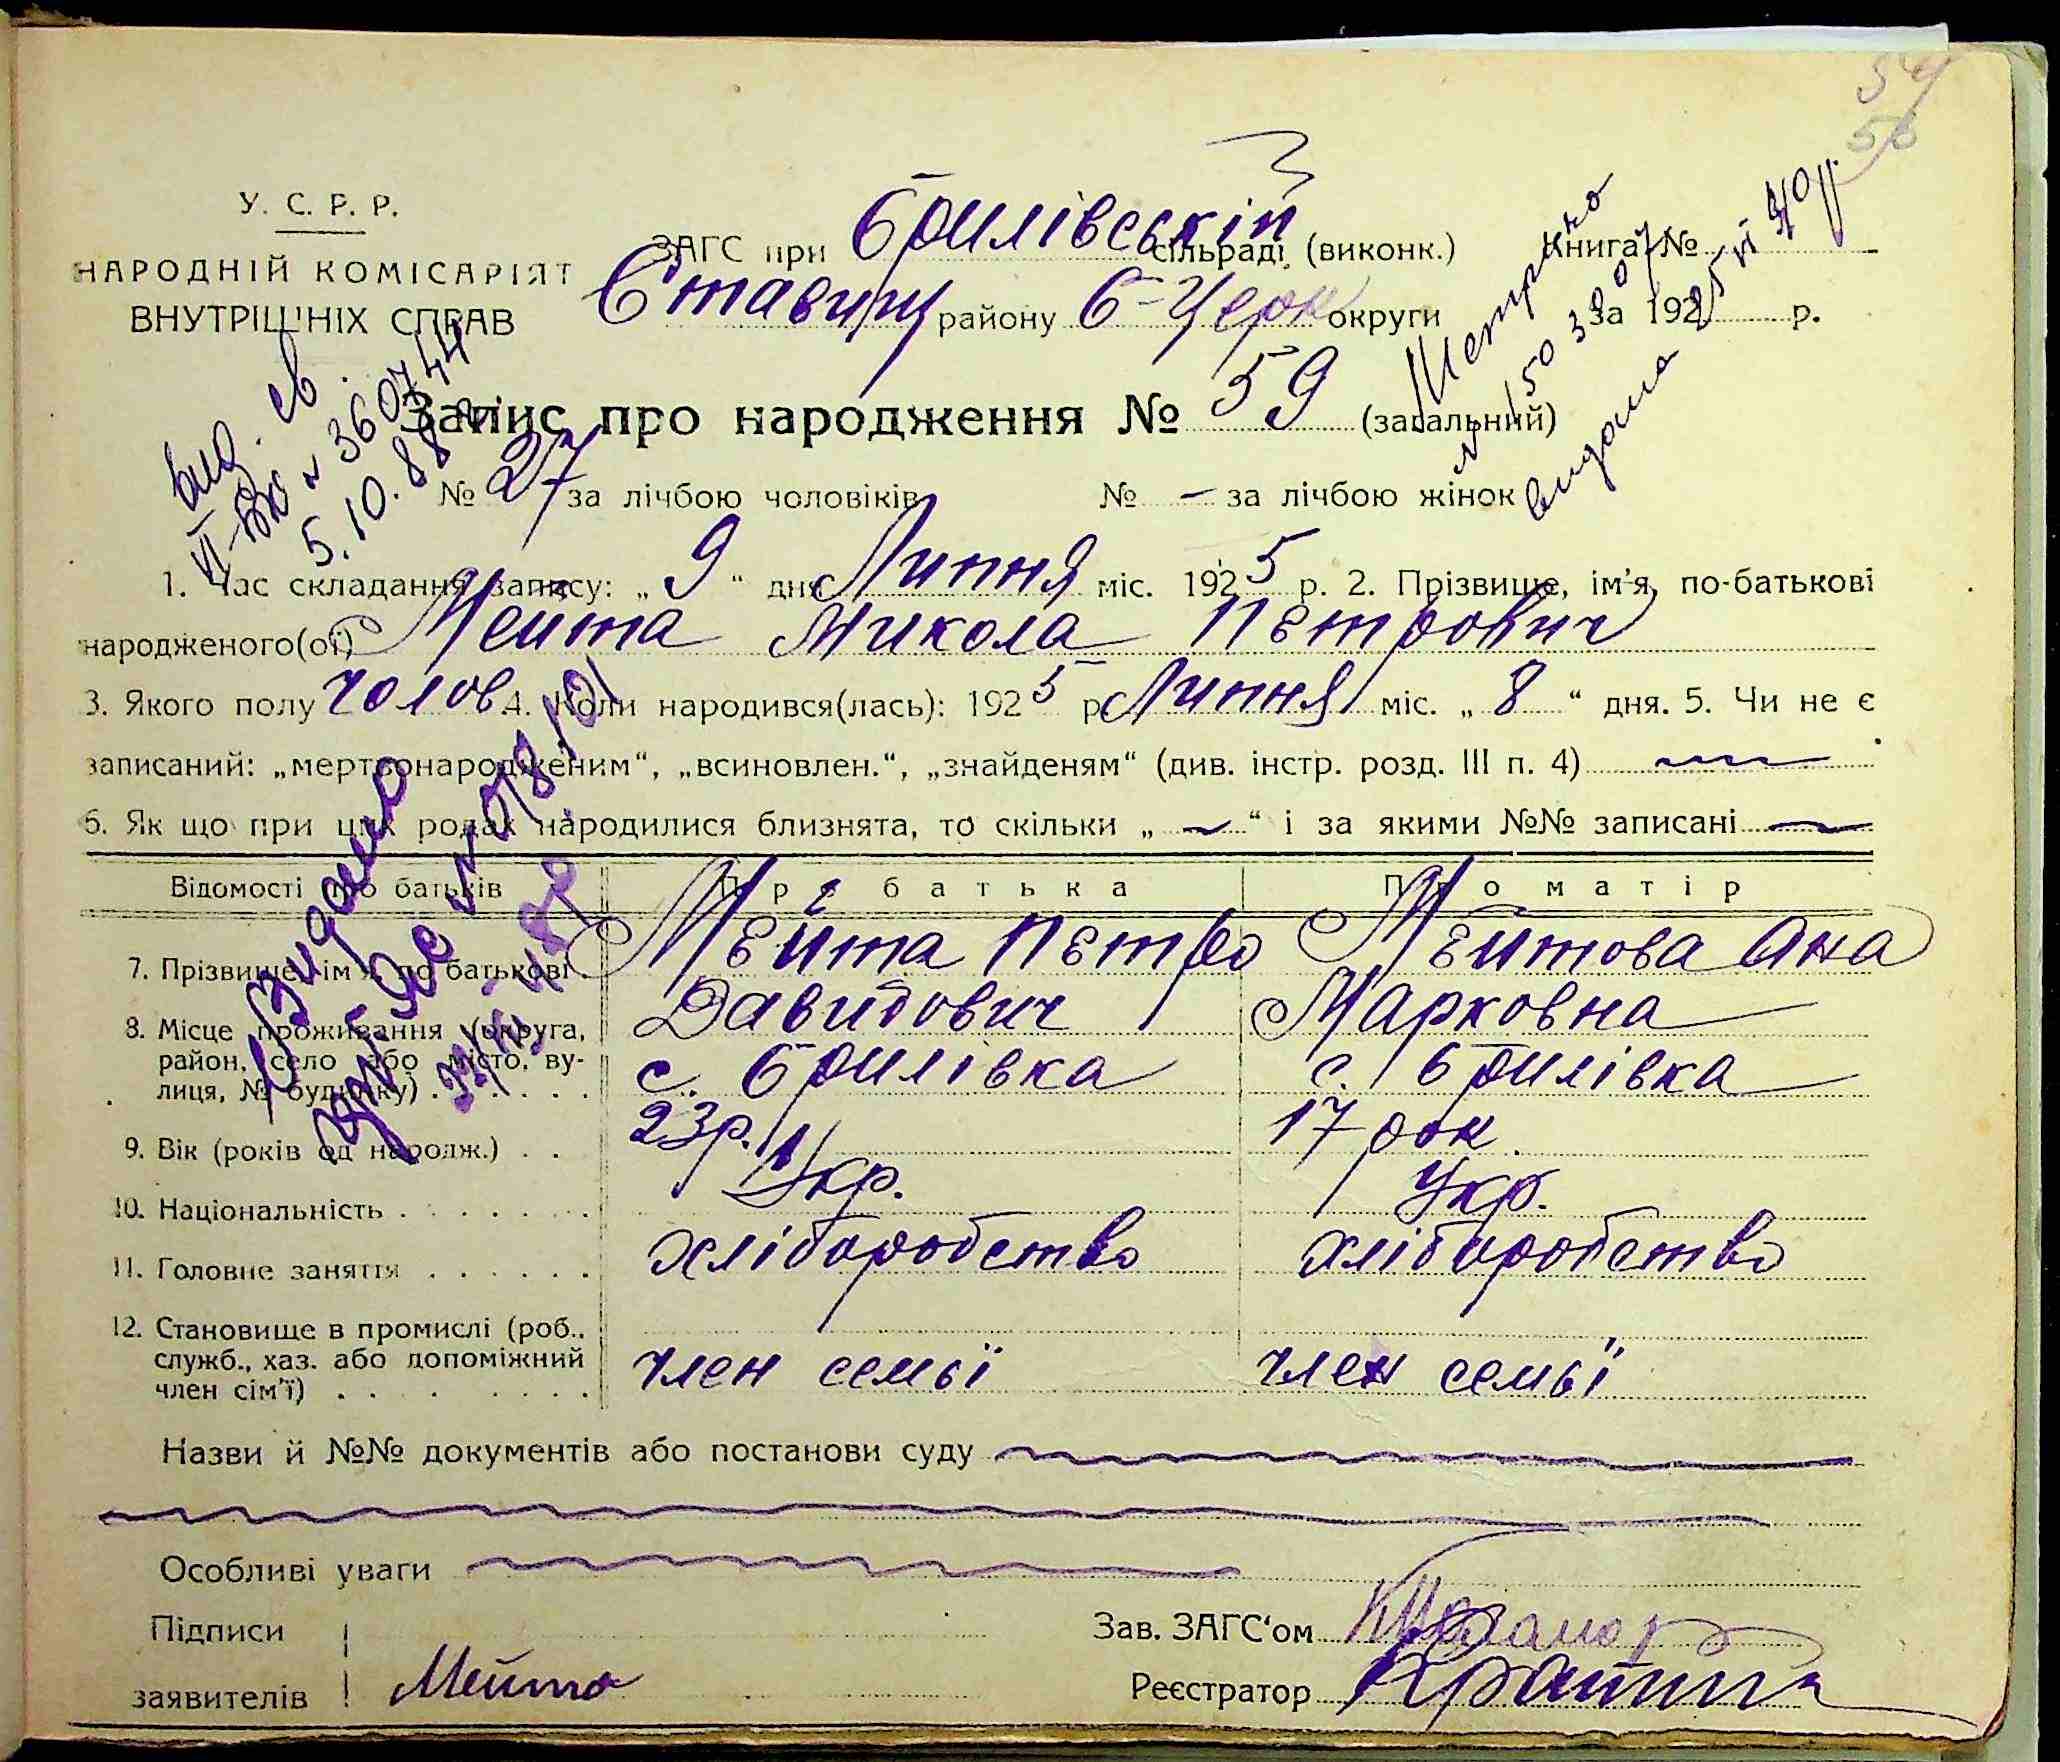 54
56
У. С. Р. Р.
НАРОДНІЙ КОМІСАРІЯТ
ВНУТРІШНІХ СПРАВ
ЗАГС при Брилівській сільраді (виконк.) Книга №
Ставищ району Б-Церк округи за 192 р.
Метрика
видана 25 VI 40 р.
вид. св.
VI-БК № 360744
5.10.88
Запис про народження № 59 (загальний)
№ 27 за лічбою чоловіків № — за лічбою жінок
1. Час складання запису: „ 9 “ дня Липня міс. 1925 р. 2. Прізвище, ім’я, по-батькові
народженого(ої) Мейта Микола Петрович
3. Якого полу чолов. 4. Коли народився(лась): 1925 р. Липня міс. „ 8 “ дня. 5. Чи не є
записаний: „мертвонародженим“, „всиновлен.“, „знайденям“ (див. інстр. розд. III п. 4)
6. Як що при цих родах народилися близнята, то скільки „ “ і за якими №№ записані
Видано
Відомості про батьків Про батька Про матір
7. Прізвище, ім’я, по батькові. Мейта Петро Мейтова Ана
Давидович Марковна
8. Місце проживання (округа,
район, село або місто, ву-
лиця, № будинку) с. Брилівка с. Брилівка
9. Вік (років од народж.) 23 р. 17 рок
10. Національність Укр. Укр.
11. Головне заняття хліборобство хліборобство
12. Становище в промислі (роб.,
служб., хаз. або допоміжний
член сім’ї) член семьї член семьї
Назви й №№ документів або постанови суду
Особливі уваги
Підписи
Зав. ЗАГС‘ом
заявителів Мейта
Реєстратор